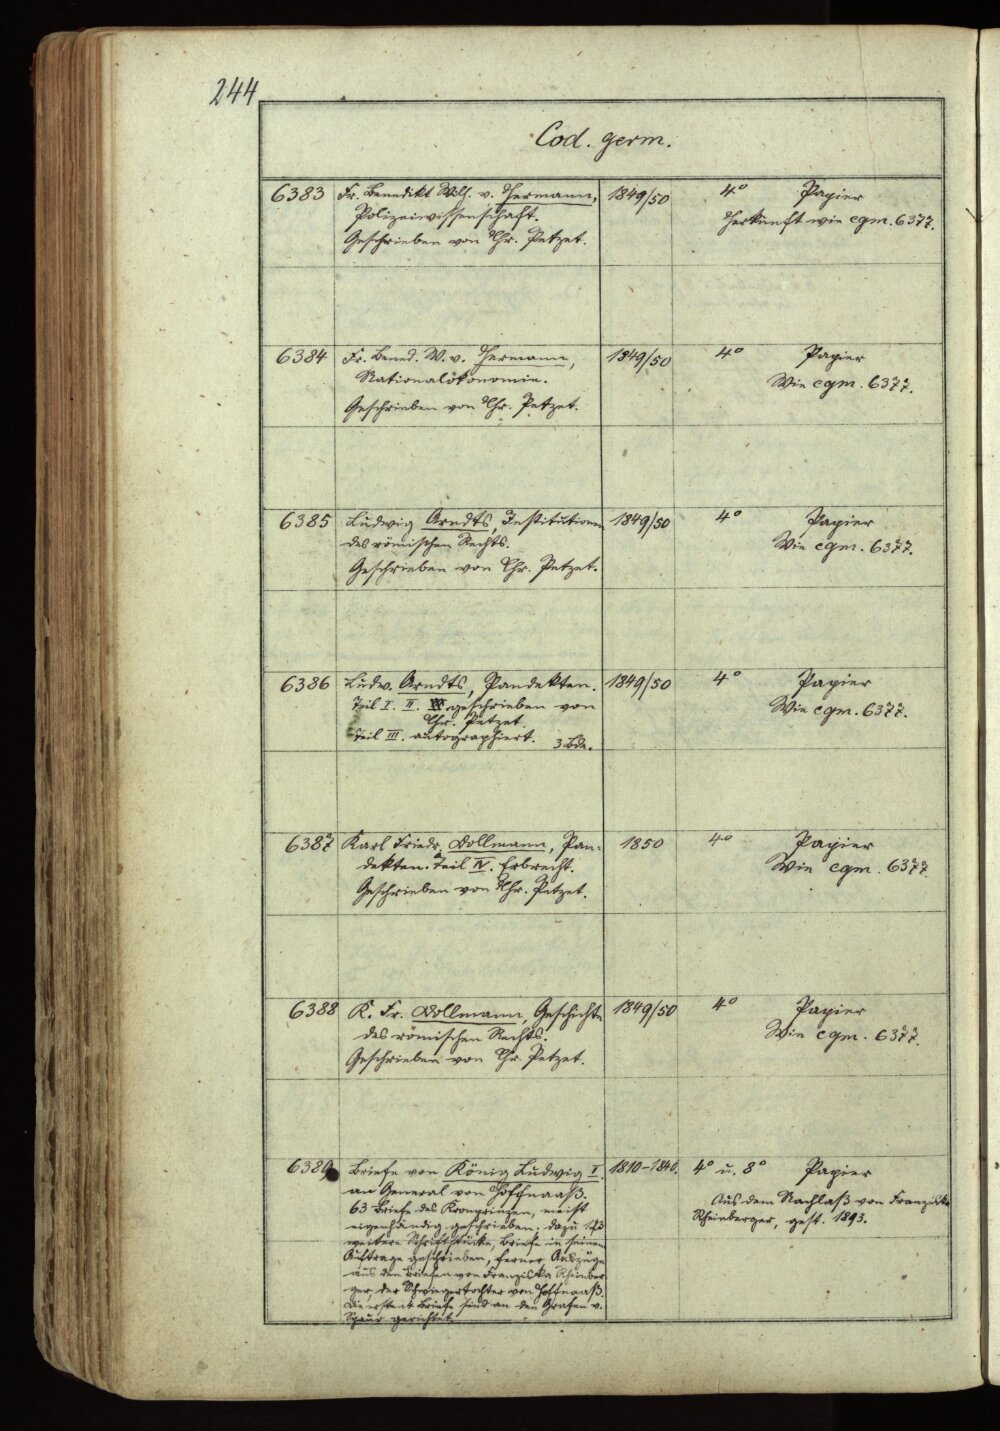 244
Cod. germ.
6383 Fr. Benedikt Wilh. v. Hermann, 1849/50 4° Papier
Polizeiwissenschaft. Herkunft wie cgm. 6377.
Geschrieben von Chr. Petzet.
6384 Fr. Bened. W. v. Hermann, 1849/50 4° Papier
Nationalökonomie. Wie cgm. 6377.
Geschrieben von Chr. Petzet.
6385 Ludwig Arndts, Institutionen 1849/50 4° Papier
des römischen Rechts. Wie cgm. 6377.
Geschrieben von Chr. Petzet.
6386 Ludw. Arndts, Pandekten. 1849/50 4° Papier
Teil I. II. geschrieben von Wie cgm. 6377.
Chr. Petzet.
Teil III. autographiert. 3 Bde.
6387 Karl Friedr. Dollmann, Pan- 1850 4° Papier
dekten. Teil IV. Erbrecht. Wie cgm. 6377.
Geschrieben von Chr. Petzet.
6388 K. Fr. Dollmann, Geschichte 1849/50 4° Papier
des römischen Rechts. Wie cgm. 6377.
Geschrieben von Chr. Petzet.
6389 Briefe von König Ludwig I. 1810–1840. 4° u. 8° Papier
an General von Hoffnaaß. Aus dem Nachlaß von Franziska
63 Briefe des Kronprinzen, meist Rheinberger, gest. 1893.
eigenhändig geschrieben; dazu
weitere Schriftstücke, Briefe in seinem
Auftrage geschrieben, ferner Auszüge
aus den Briefen von Franziska Rheinber
ger, der Schwiegertochter von Hoffnaaß.
Die ersten Briefe sind an den Grafen v.
Spaur gerichtet.